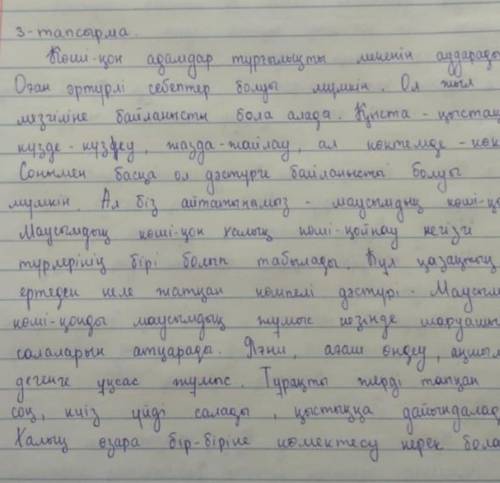 3-тапсырма.
Көші-қон адамдар тұрғылықты мекенін аударады
Оған әртүрлі себептер болуы мүмкін. Ол жыл
мезгіліне байланысты бола алада. Қыста - қыстац
күзде - күзеу, жазда - жайлау, ал көктемде - көк
Сонымен басқа ол дәстүрге байланысты болуы
мүмкін. Ал біз айтатынымыз - маусымдық көші-қо
Маусымдық көші-қон халық көші-қойнау негізгі
түрлерінің бірі болып табылады. Бұл қазақтың
ертеден келе жатқан көшпелі дәстүрі. Маусым
көші-қонды маусымдық жұмыс кезінде шаруашы
салаларын атқарады. Яғни, ағаш өңдеу, аңшыл
дегенге ұқсас жұмыс. Тұрақты жерді тапқан
соң, киіз үйді салады, қыстыққа дайындалад
Халық өзара бір-біріне көмектесу керек бола